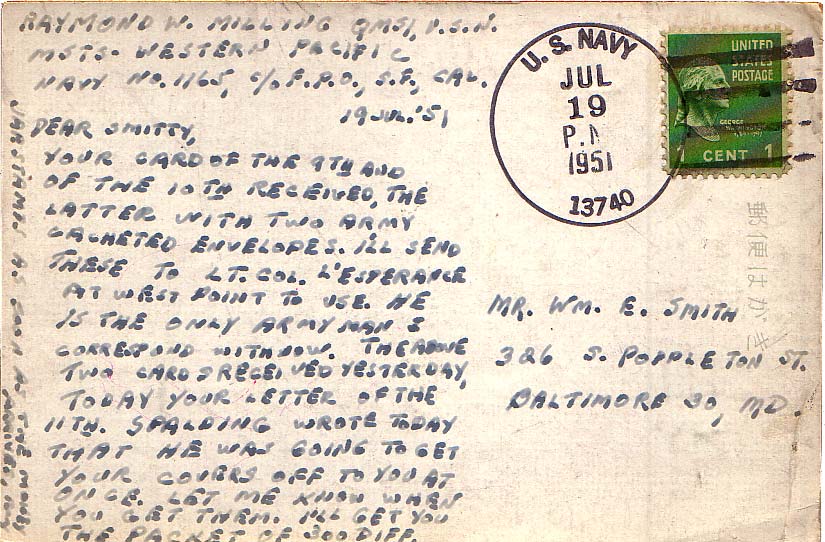 RAYMOND W. MILLYING QMS1, U.S.N.
MSTS. WESTERN PACIFIC
NAVY NO. 1165, C/O F.P.O., S.F., CAL.
19 JUL. '51
DEAR SMITTY,
YOUR CARD OF THE 9TH AND
OF THE 10TH RECEIVED, THE
LATTER WITH TWO ARMY
CACHETED ENVELOPES. I'LL SEND
THESE TO LT. COL. L'ESPERANCE
AT WEST POINT TO USE. HE
IS THE ONLY ARMY MAN I
CORRESPOND WITH NOW. THE ABOVE
TWO CARDS RECEIVED YESTERDAY,
TODAY YOUR LETTER OF THE
11TH. SPALDING WROTE TODAY
THAT HE WAS GOING TO GET
YOUR COVERS OFF TO YOU AT
ONCE. LET ME KNOW WHEN
YOU GET THEM. I'LL GET YOU
THE PACKET OF 300 DIFF.
STAMPS AS SOON AS THE MONEY
U.S. NAVY
JUL
19
P.M
1951
13740
UNITED
STATES
POSTAGE
GEORGE
WASHINGTON
1 CENT 1
郵便はがき
MR. WM. E. SMITH
326 S. POPPLETON ST.
BALTIMORE 30, MD.